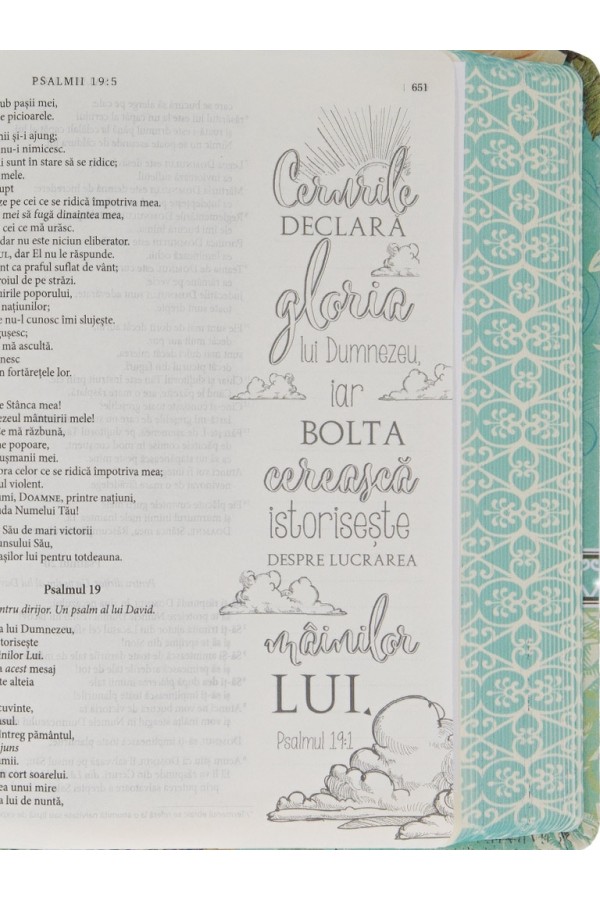 PSALMII 19:5
651
ub pașii mei,
e picioarele.
nii și-i ajung;
nu-i nimicesc.
i sunt în stare să se ridice;
mele.
upt
ze pe cei ce se ridică împotriva mea.
mei să fugă dinaintea mea,
cei ce mă urăsc.
dar nu este niciun eliberator.
UL, dar El nu le răspunde.
nt ca praful suflat de vânt;
roiul de pe străzi.
uirile poporului,
națiunilor;
e nu-l cunosc îmi slujește.
gușesc;
mă ascultă.
nesc
n fortărețele lor.
e Stânca mea!
ezeul mântuirii mele!
e mă răzbună,
ne popoare,
ușmanii mei.
pra celor ce se ridică împotriva mea;
ul violent.
umi, DOAMNE, printre națiuni,
da Numelui Tău!
Său de mari victorii
unsului Său,
așilor lui pentru totdeauna.
Psalmul 19
ntru dirijor. Un psalm al lui David.
a lui Dumnezeu,
torisește
inilor Lui.
a acest mesaj
te alteia
cuvinte,
asul.
întreg pământul,
juns
umii.
n cort soarelui.
ea unui mire
a lui de nuntă,
Cerurile
DECLARĂ
gloria
lui Dumnezeu,
iar
BOLTA
cerească
istorisește
DESPRE LUCRAREA
mâinilor
LUI.
Psalmul 19:1